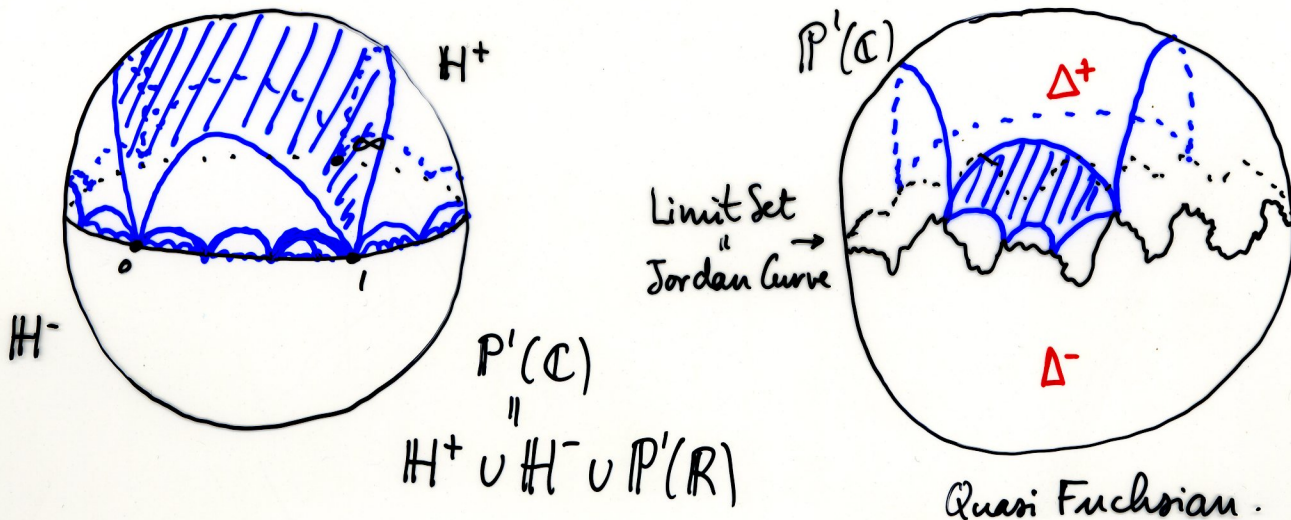 ℍ⁺
∞
0
1
ℍ⁻
ℙ'(ℂ)
"
ℍ⁺ ∪ ℍ⁻ ∪ ℙ'(ℝ)
ℙ'(ℂ)
Δ⁺
Limit Set
"
Jordan Curve →
Δ⁻
Quasi Fuchsian.